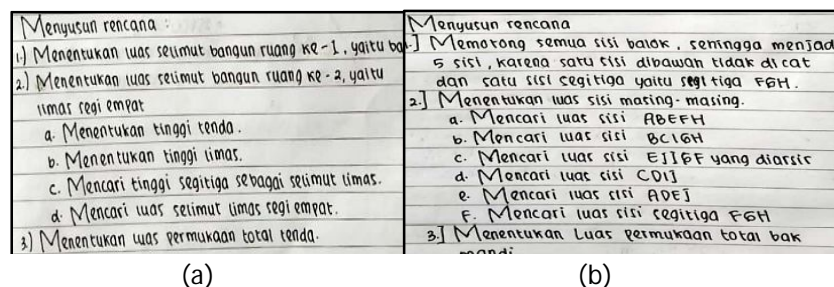 Menyusun rencana :
1.) Menentukan luas selimut bangun ruang ke-1, yaitu
2.) Menentukan luas selimut bangun ruang ke-2, yaitu
limas segi empat
a. Menentukan tinggi tenda.
b. Menentukan tinggi limas.
c. Mencari tinggi segitiga sebagai selimut limas.
d. Mencari luas selimut limas segi empat.
3.) Menentukan luas permukaan total tenda.
(a)
Menyusun rencana
1.] Memotong semua sisi balok, sehingga menjad
5 sisi, karena satu sisi dibawah tidak di cat
dan satu sisi segitiga yaitu segi tiga FGH.
2.] Menentukan luas sisi masing-masing.
a. Mencari luas sisi ABEFH
b. Mencari luas sisi BCIGH
c. Mencari luas sisi EJIGF yang diarsir
d. Mencari luas sisi CDIJ
e. Mencari luas sisi ADEJ
F. Mencari luas sisi segitiga FGH
3.] Menentukan Luas permukaan total bak
mandi
(b)